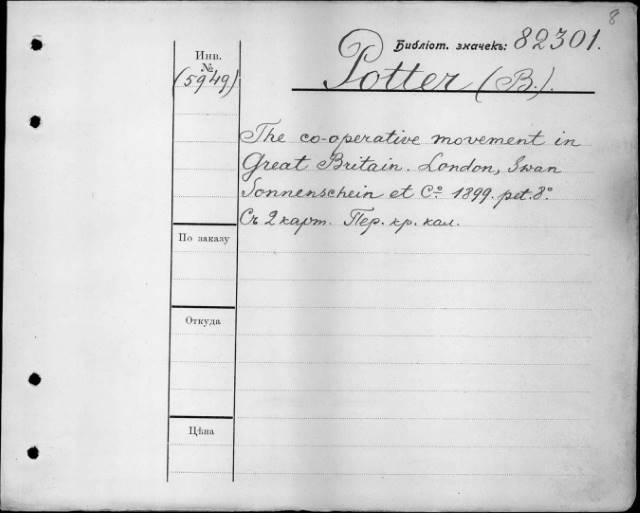 8
Библіот. значекъ: 82301.
Инв.
№
(5949)
Potter (B.).
The co-operative movement in
Great Britain. London, Swan
Sonnenschein et Cº. 1899. pet. 8º.
Съ 2 карт. Пер. кр. кал.
По заказу
Откуда
Цѣна